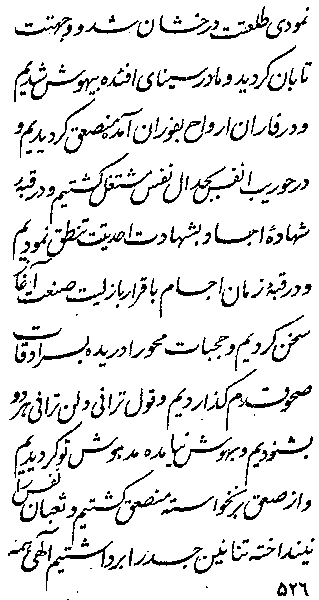 نمودی طلعتت درخشان شد و وجهتت
تابان گردید و ما در سینای افئده بیهوش شدیم
و در فاران ارواح بفوران آمده منصعق گردیدیم و
در حوریب انفس بجدال نفس مشتغل گشتیم و در قبهٔ
شهادهٔ اجساد بشهادت احدیتت تنطق نمودیم
و در قبهٔ زمان اجسام باقرار بازلیت صنعت آغاز
سخن کردیم و حجبات محو را دریده بسرادقات
صحو قدم گذاردیم و قول ترانی و لن ترانی هر دو
بشنودیم و بهوش نیامده مدهوش تو گردیدیم
و از صعق برنخواسته منصعق گشتیم و ثعبان نفس
نینداخته تنانین جسد را برداشتیم الهی
۵۲۶